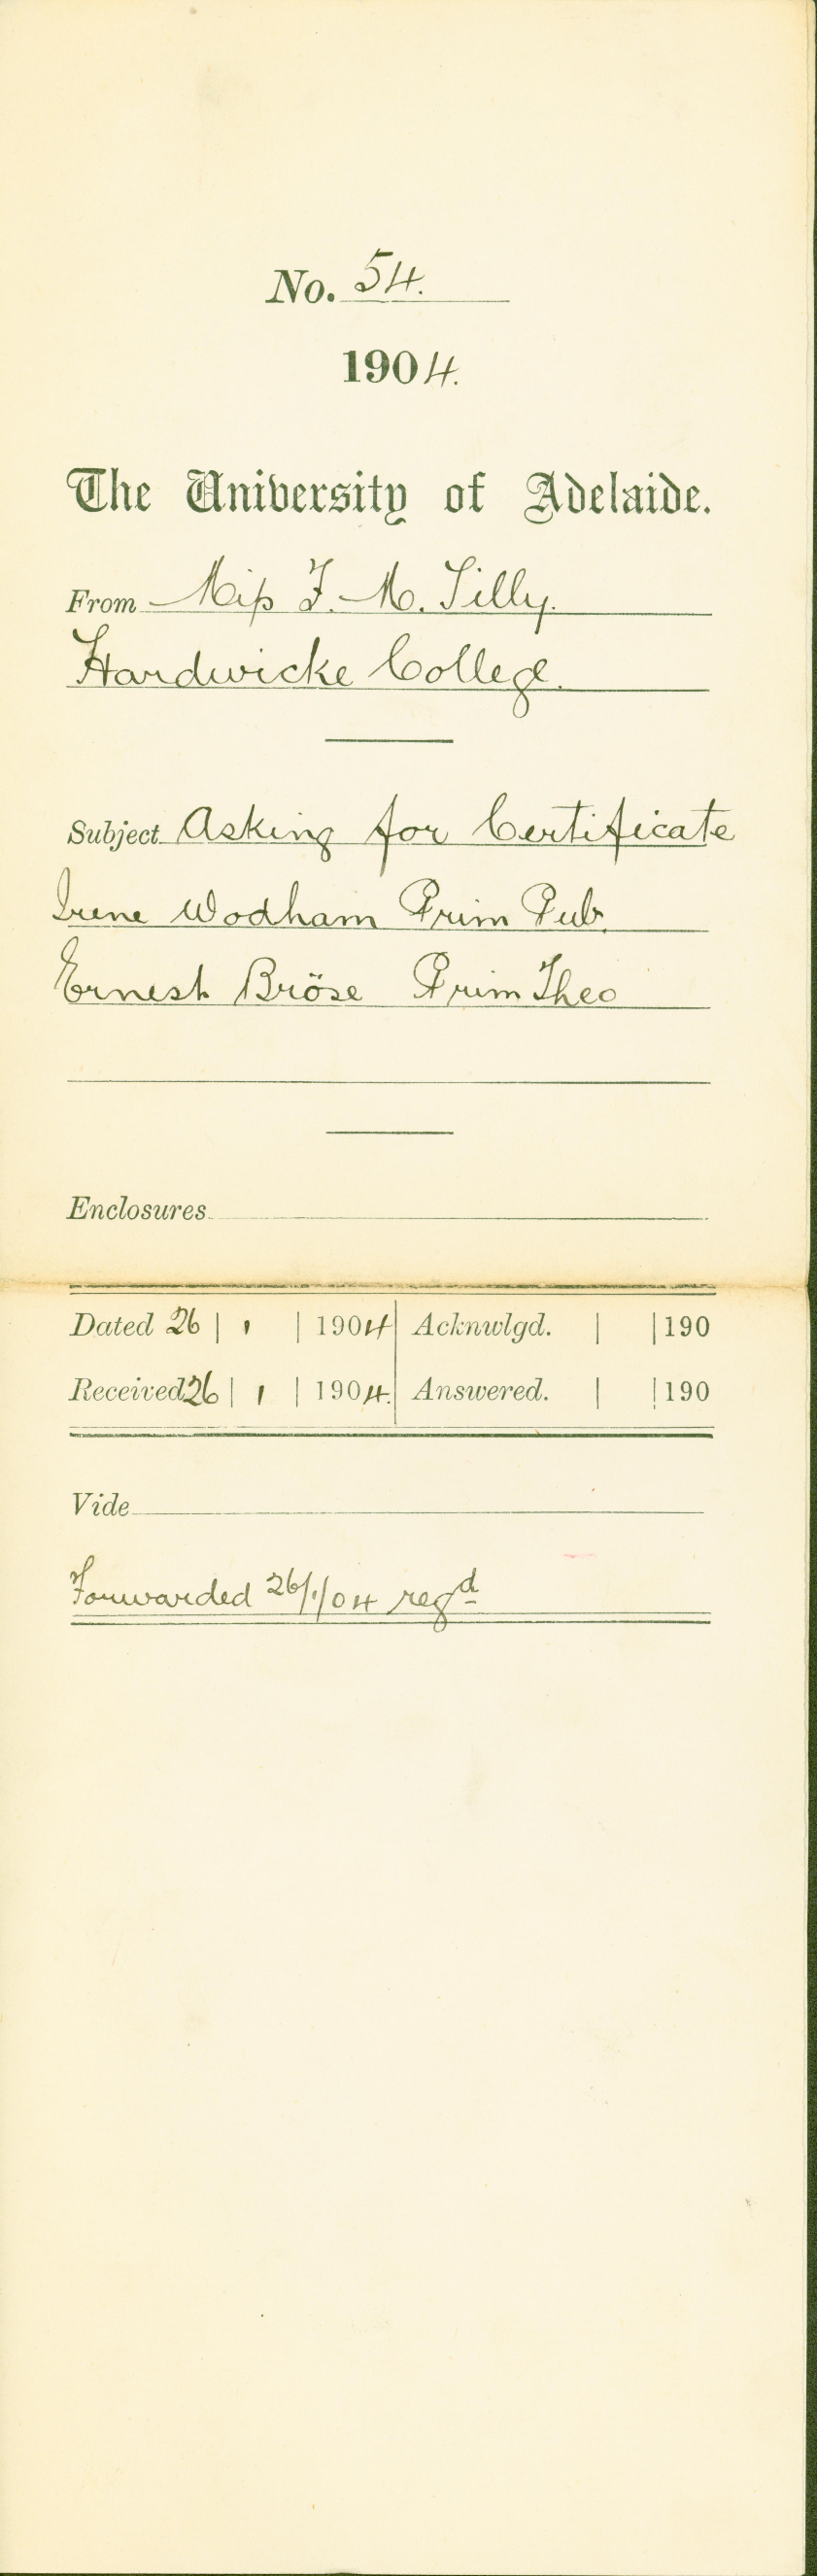 No. 54.
1904.
The University of Adelaide.
From Miss F. M. Tilly.
Hardwicke College.
Subject Asking for Certificate
Irene Wodham Prim Pub.
Ernest Bröse Prim Theo
Enclosures
Dated 26 | 1 | 1904 | Acknwlgd. | | 190
Received 26 | 1 | 1904. | Answered. | | 190
Vide
Forwarded 26/1/04 regd